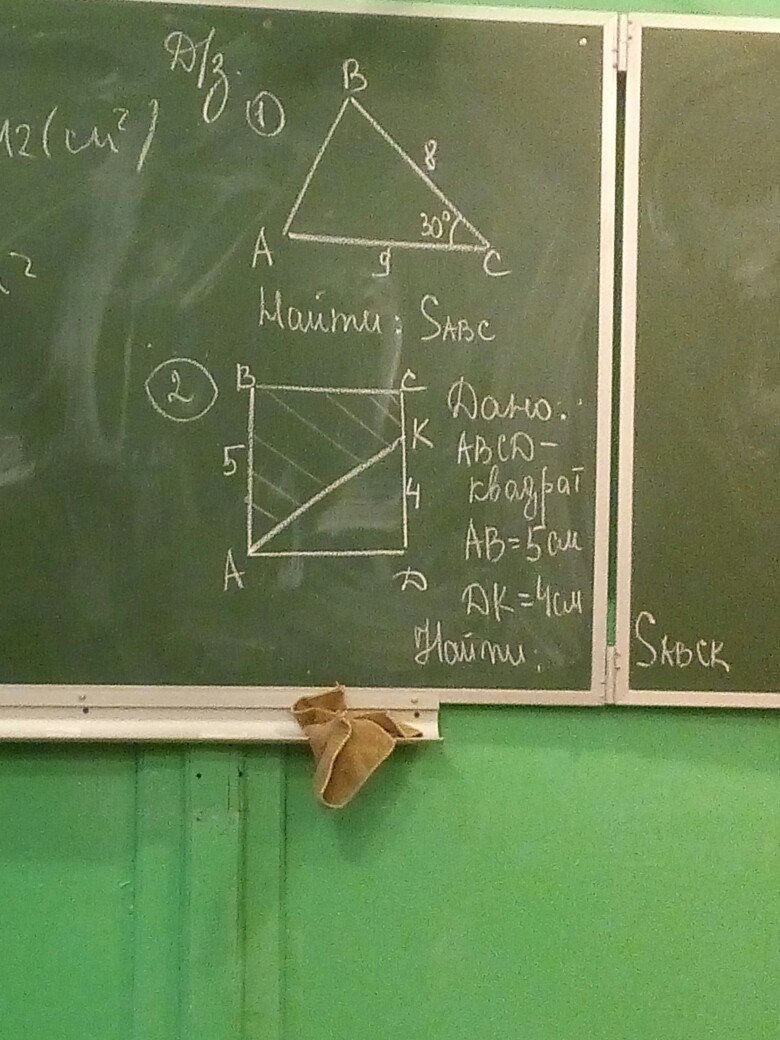 Д/з.
12 (см²)
2
1
B
8
30°
A
9
C
Найти: SABC
2
B
C
K
5
4
A
D
Дано:
ABCD-
квадрат
AB=5см
DK=4см
Найти: SABCK